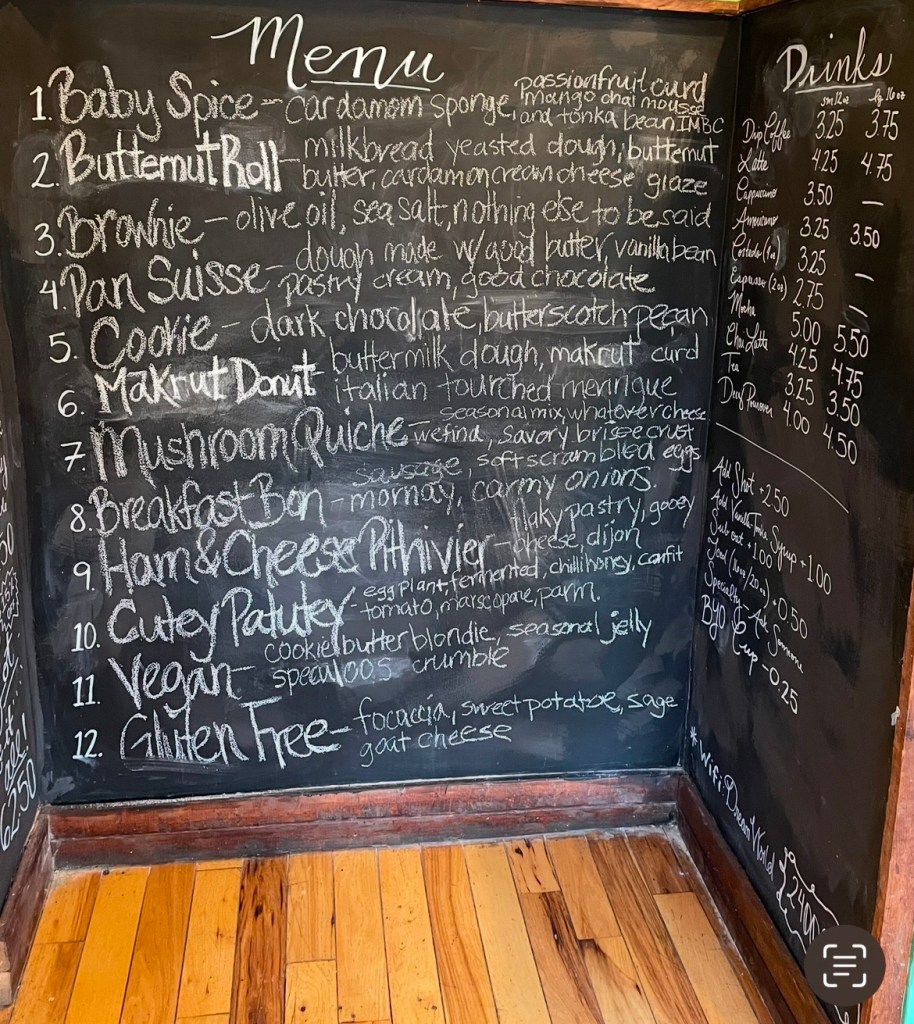 Menu
1. Baby Spice - cardamom sponge, passionfruit curd
mango chai mousse
and tonka bean IMBC
2. Butternut Roll - milkbread yeasted dough, butternut
butter, cardamon cream cheese glaze
3. Brownie - olive oil, sea salt, nothing else to be said
4. Pan Suisse - dough made w/good butter, vanilla bean
pastry cream, good chocolate
5. Cookie - dark chocolate, butterscotch pecan
6. Makrut Donut - buttermilk dough, makrut curd
italian tourched meringue
7. Mushroom Quiche - seasonal mix, whatever cheese
we find, savory brisee crust
8. Breakfast Bon - sausage, soft scrambled eggs
mornay, carmy onions.
9. Ham & Cheese Pithivier - flaky pastry, gooey
cheese, dijon
10. Cutey Patutey - eggplant, fermented, chilli honey, confit
tomato, marscopone, parm.
11. Vegan - cookie butter blondie, seasonal jelly
speculoos crumble
12. Gluten Free - focaccia, sweet potatoe, sage
goat cheese
Drinks
sm 12oz Lg 16oz
Drip Coffee 3.25 3.75
Latte 4.25 4.75
Cappuccino 3.50 —
Americano 3.25 3.50
Cortado (4oz) 3.25 —
Espresso (2oz) 2.75 —
Mocha 5.00 5.50
Chai Latte 4.25 4.75
Tea 3.25 3.50
Dirty 4.00 4.50
Add Shot +2.50
Add Vanilla Syrup +1.00
Sub oat +1.00
Iced (16oz/20oz) +0.50
Specialty - Ask Someone
BYO Cup -0.25
* Wifi: DreamWorld
2400
6.50